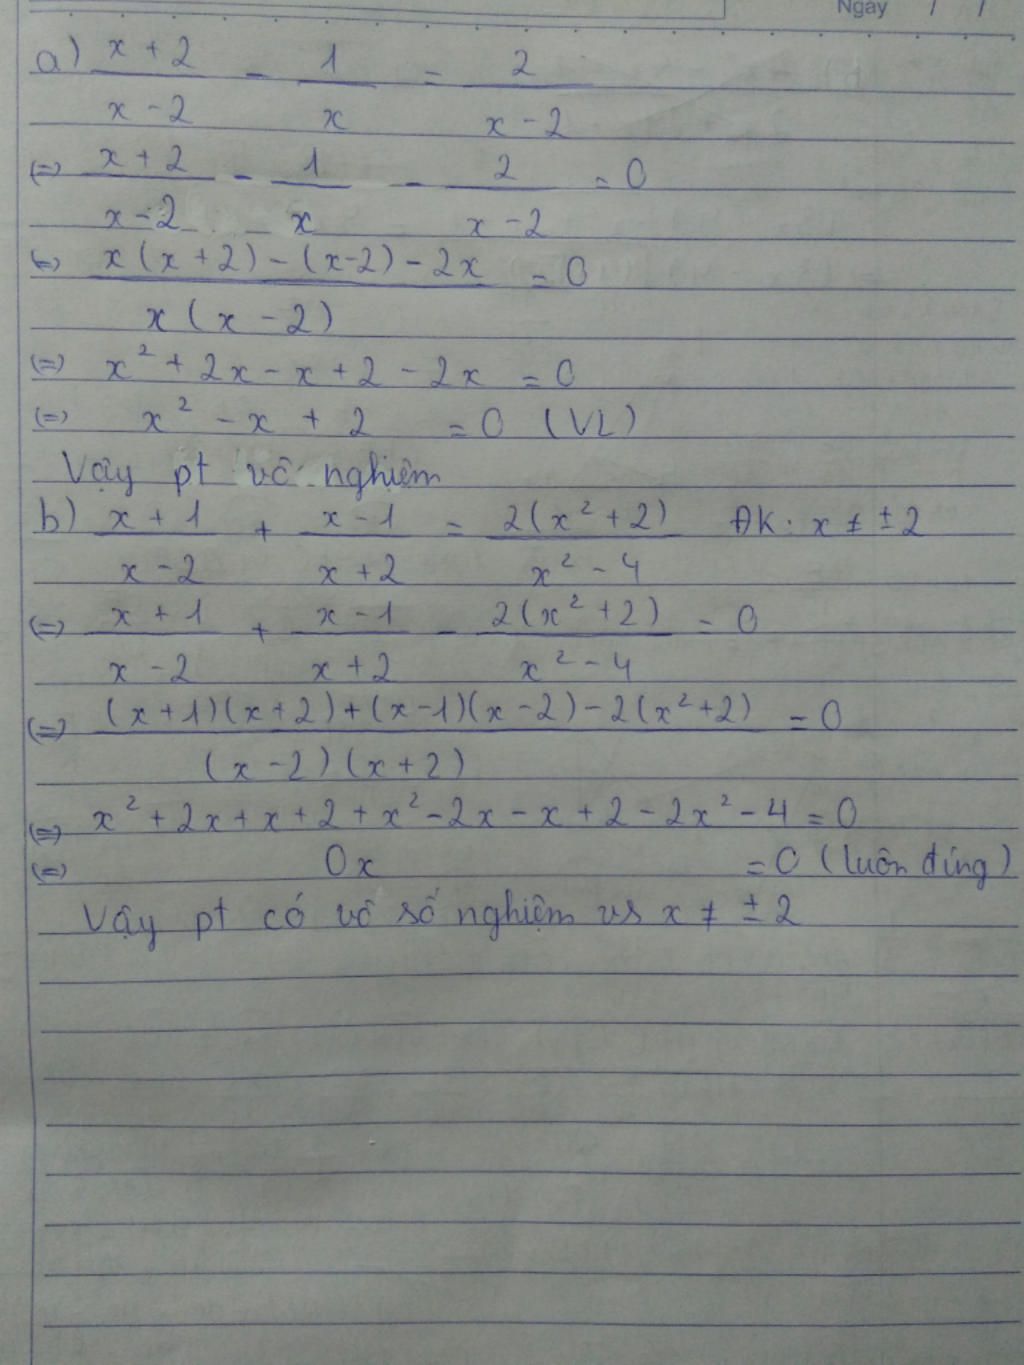 Ngày / /
a) \frac{x+2}{x-2} - \frac{1}{x} = \frac{2}{x-2}
(=) \frac{x+2}{x-2} - \frac{1}{x} - \frac{2}{x-2} = 0
(=) \frac{x(x+2)-(x-2)-2x}{x(x-2)} = 0
(=) x² + 2x - x + 2 - 2x = 0
(=) x² - x + 2 = 0 (VL)
Vậy pt vô nghiệm
b) \frac{x+1}{x-2} + \frac{x-1}{x+2} = \frac{2(x²+2)}{x²-4} ĐK: x ≠ ±2
(=) \frac{x+1}{x-2} + \frac{x-1}{x+2} - \frac{2(x²+2)}{x²-4} = 0
(=) \frac{(x+1)(x+2)+(x-1)(x-2)-2(x²+2)}{(x-2)(x+2)} = 0
(=) x² + 2x + x + 2 + x² - 2x - x + 2 - 2x² - 4 = 0
(=) 0x = 0 (luôn đúng)
Vậy pt có vô số nghiệm vs x ≠ ±2